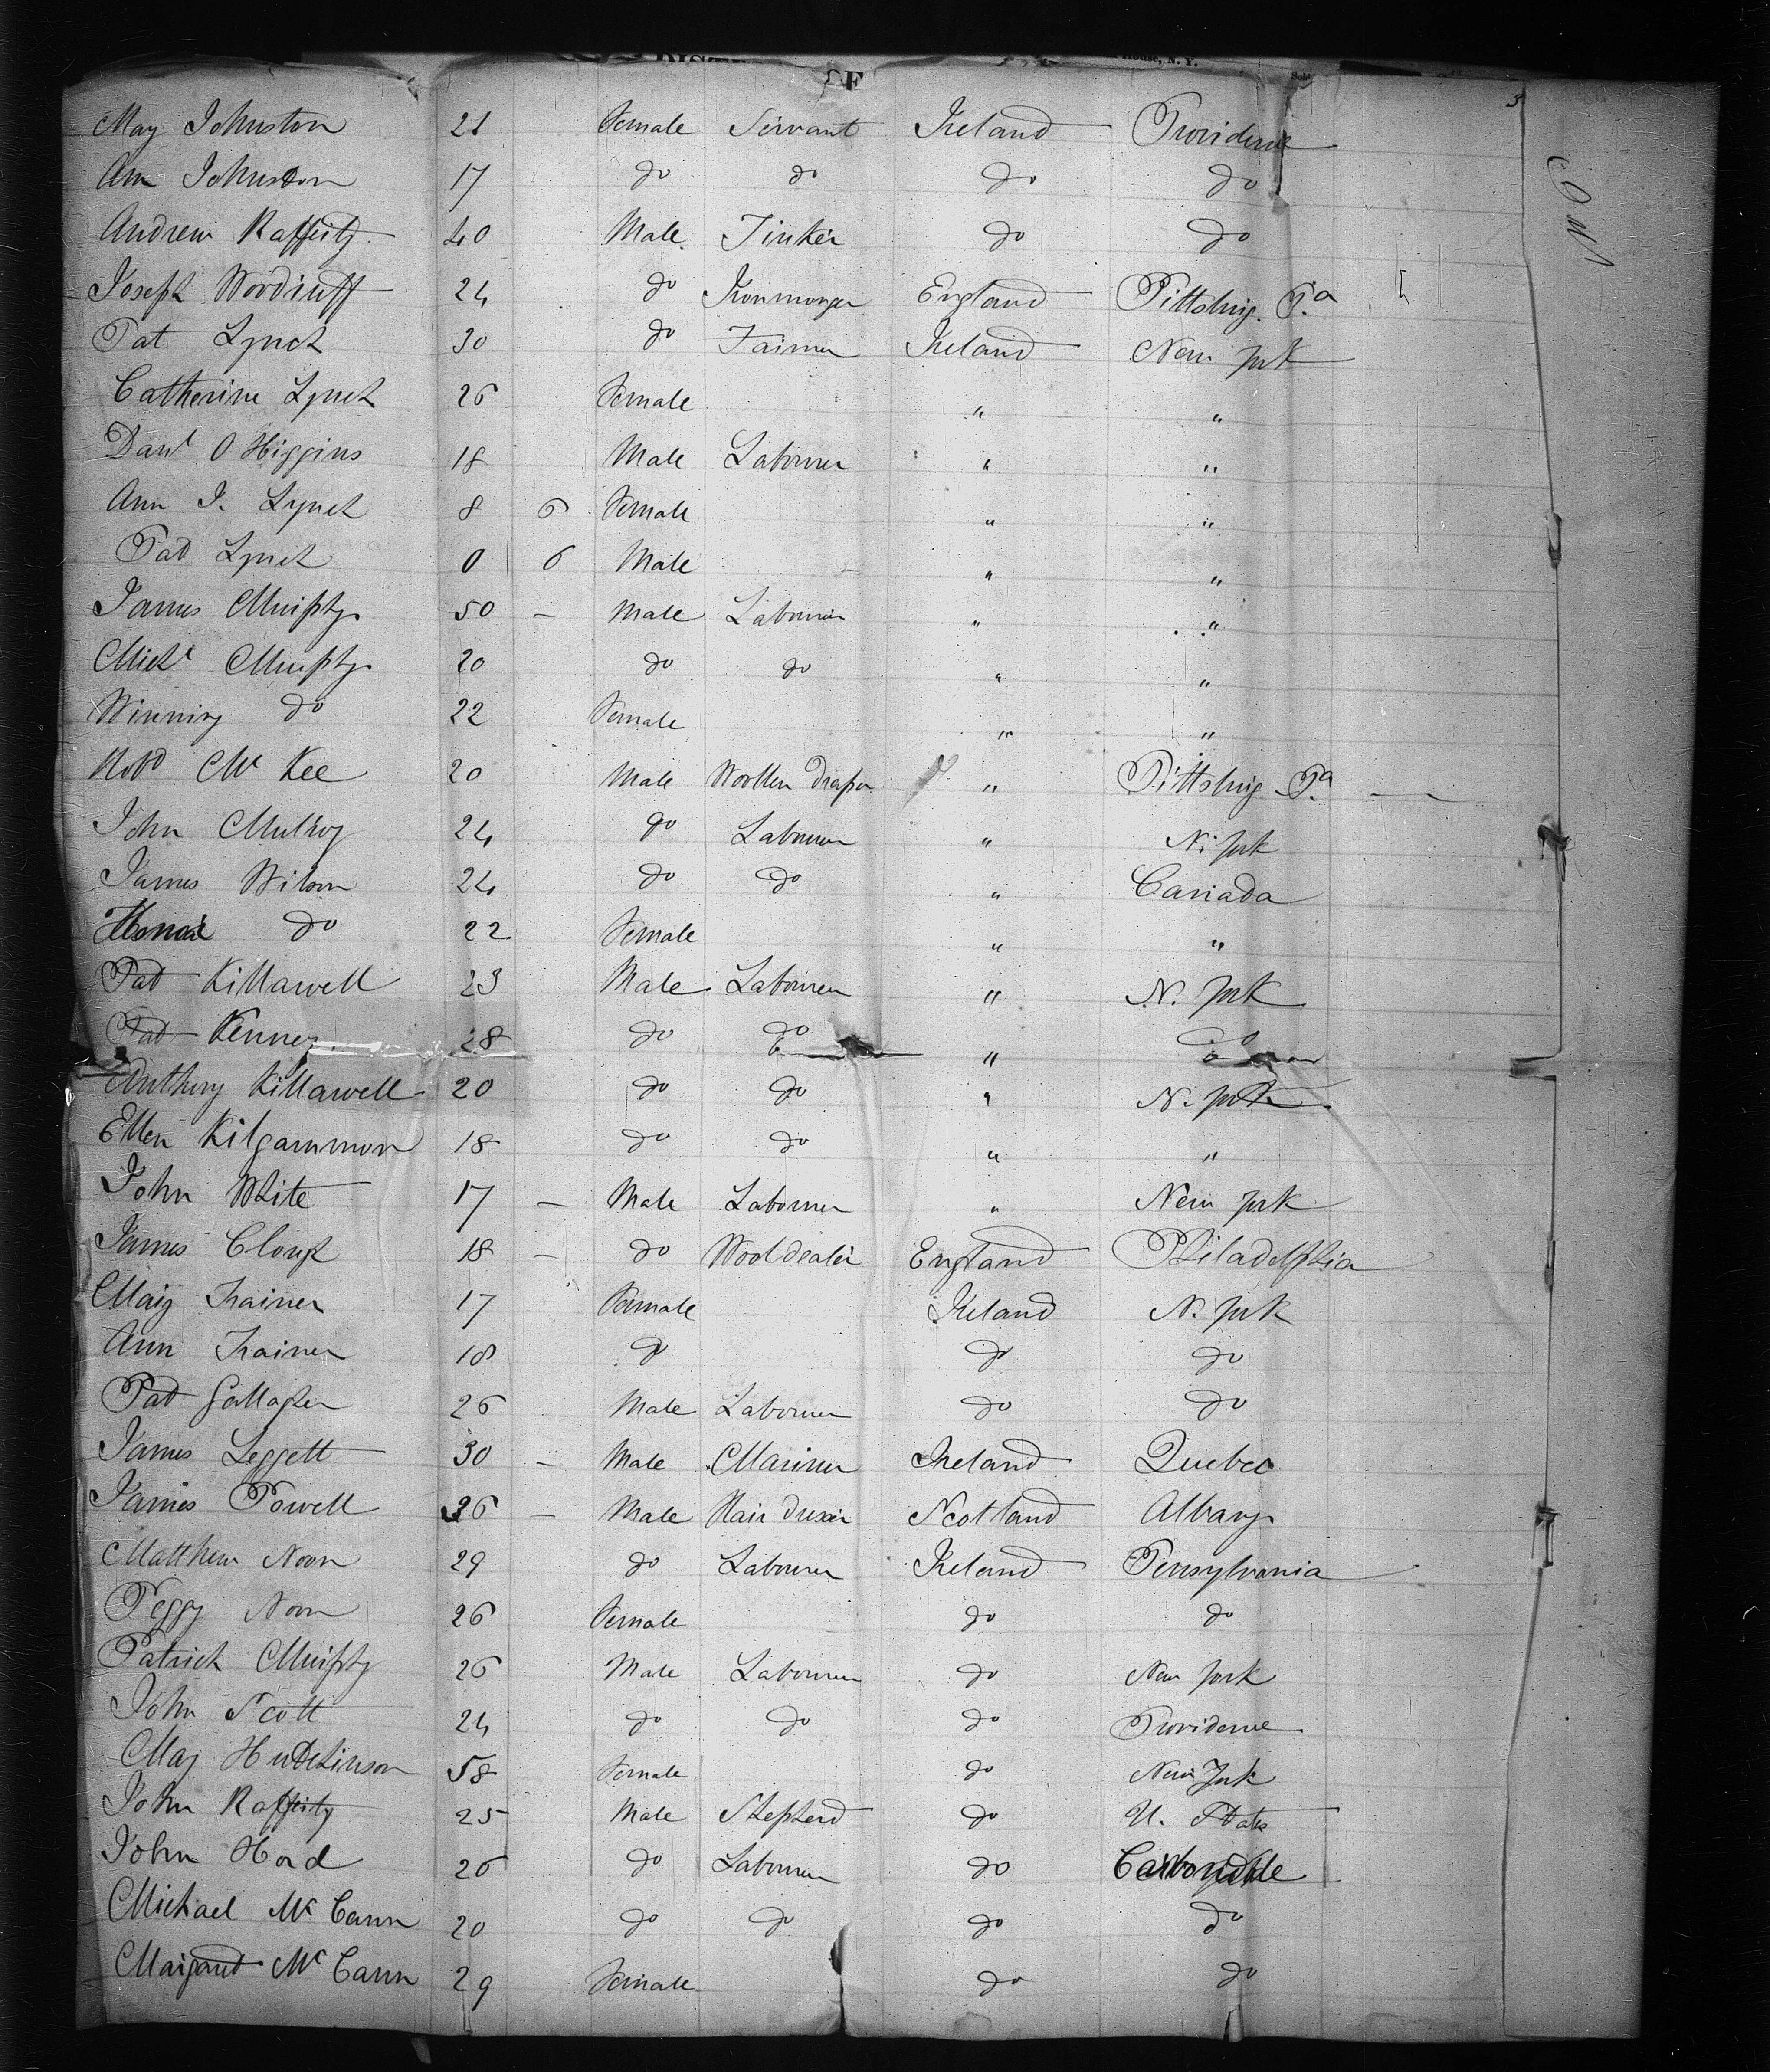 House, N. Y.
May Johnston 21 Female Servant Ireland Providence
Ann Johnston 17 do do do do
Andrew Rafferty 40 Male Tinker do do
Joseph Woodruff 24 do Ironmonger England Pittsburg. Pa
Pat Lynch 30 do Farmer Ireland New York
Catherine Lynch 26 Female " "
Danl O Higgins 18 Male Labourer " "
Ann J. Lynch 8 6 Female " "
Pat Lynch 0 6 Male " "
James Murphy 50 – Male Labourer " "
Michl Murphy 20 do do " "
Winning do 22 Female " "
Robd Mc Kee 20 Male Woollen Draper " Pittsburg Pa
John Mulroy 24 do Labourer " N. York
James Wilson 24 do do " Canada
do 22 Female " "
Pat Killawell 23 Male Labourer " N. York
Pat Kenney 28 do do " do
Anthony Killawell 20 do do " N. York
Ellen Kilgammon 18 do do " "
John White 17 – Male Labourer " New York
James Clough 18 – do Wool dealer England Philadelphia
Mary Trainer 17 Female Ireland N. York
Ann Trainer 18 do do do
Pat Gallagher 26 Male Labourer do do
James Leggett 30 – Male Mariner Ireland Quebec
James Powell 36 – Male Hair dresser Scotland Albany
Matthew Noon 29 do Labourer Ireland Pensylvania
Peggy Noon 26 Female do do
Patrick Murphy 26 Male Labourer do New York
John Scott 24 do do do Providence
May Hutchinson 58 Female do New York
John Rafferty 25 Male Shepherd do U. States
John Hord 26 do Labourer do Carbondale
Michael Mc Cann 20 do do do do
Margaret Mc Cann 29 Female do do